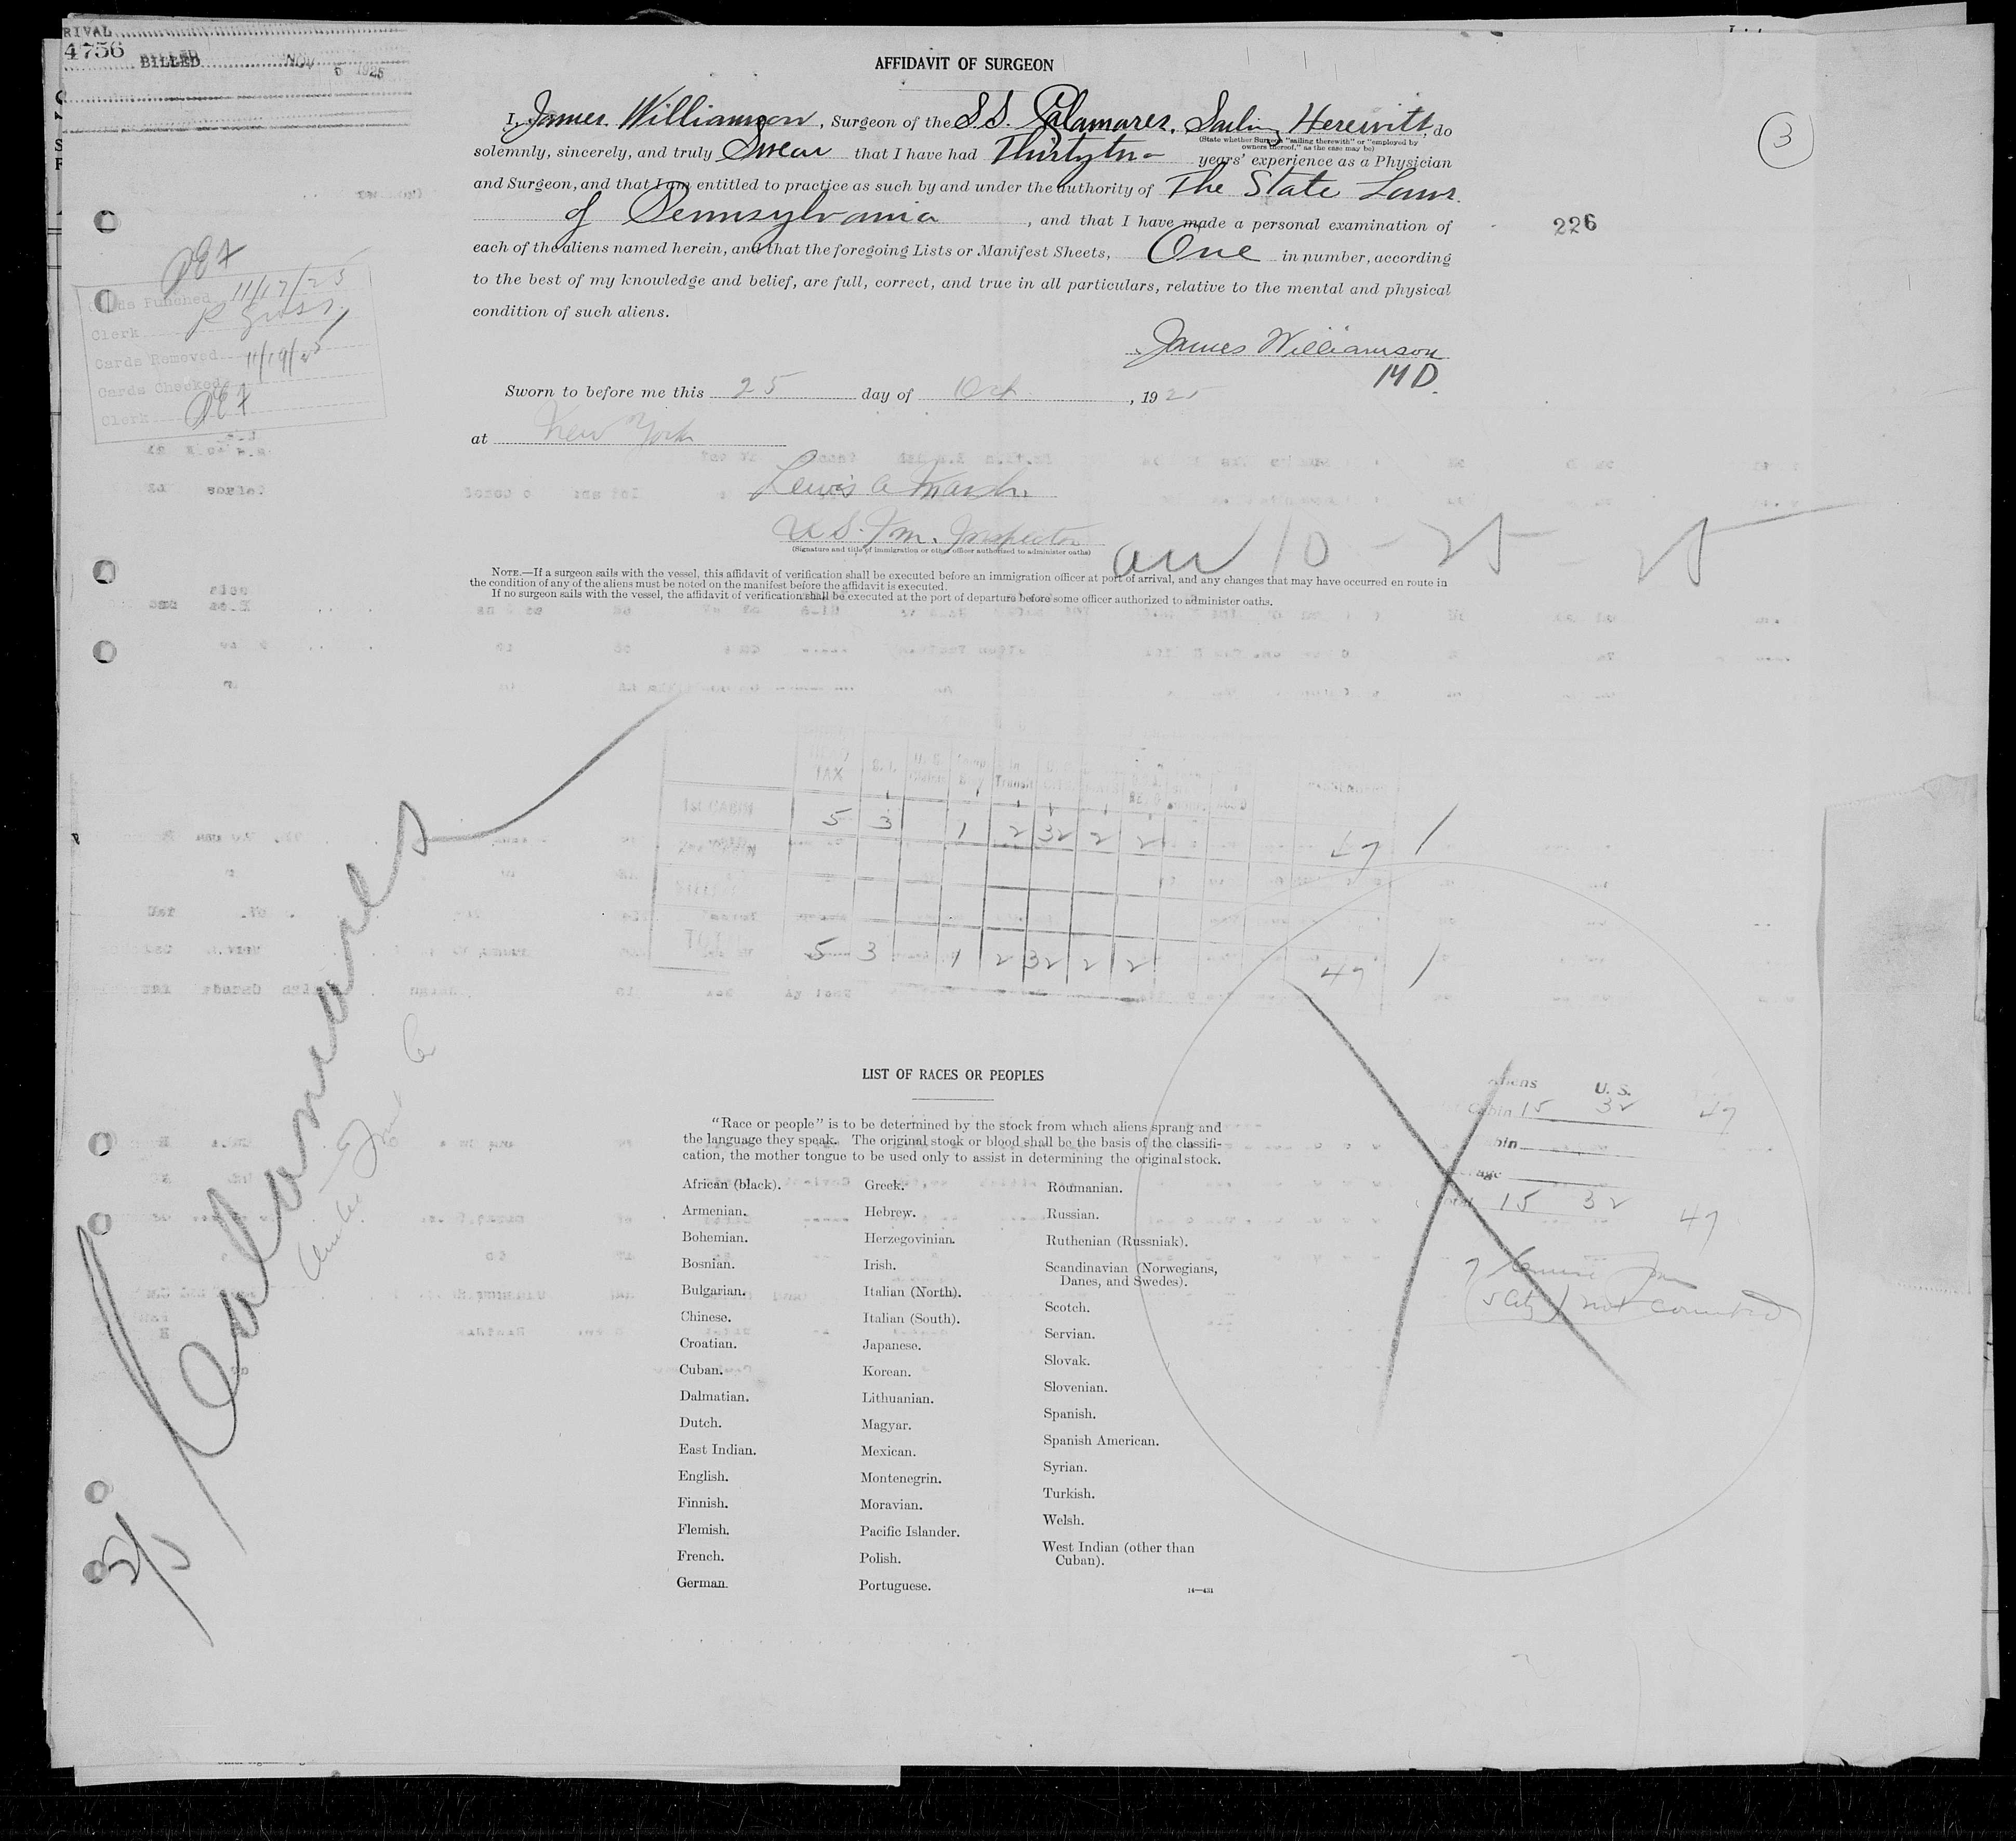 RIVAL
4756
BILLED NOV 5 1925
AFFIDAVIT OF SURGEON
I, James Williamson, Surgeon of the S.S. Calamares, Sailing Herewith, do
(State whether Surgeon "sailing therewith" or "employed by
owners thereof," as the case may be)
solemnly, sincerely, and truly Swear that I have had Thirtytwo years' experience as a Physician
and Surgeon, and that I am entitled to practice as such by and under the authority of The State Laws
of Pennsylvania, and that I have made a personal examination of
each of the aliens named herein, and that the foregoing Lists or Manifest Sheets, One in number, according
to the best of my knowledge and belief, are full, correct, and true in all particulars, relative to the mental and physical
condition of such aliens.
James Williamson
M D.
Sworn to before me this 25 day of Oct, 1925
at New York
Lewis A
U S. Im. Inspector
(Signature and title of immigration or other officer authorized to administer oaths)
arr 10 - 25 - 25
3
226
Cards Punched 11/17/25
Clerk
Cards Removed 11/19/25
Cards Checked
Clerk
NOTE.—If a surgeon sails with the vessel, this affidavit of verification shall be executed before an immigration officer at port of arrival, and any changes that may have occurred en route in
the condition of any of the aliens must be noted on the manifest before the affidavit is executed.
If no surgeon sails with the vessel, the affidavit of verification shall be executed at the port of departure before some officer authorized to administer oaths.
TAX
Transit
1st CABIN 5 3 1 2 32 2 2 47 1
TOTAL 5 3 1 2 32 2 2 47 1
S/S Calamares
United Fruit Co
LIST OF RACES OR PEOPLES
"Race or people" is to be determined by the stock from which aliens sprang and
the language they speak. The original stock or blood shall be the basis of the classifi-
cation, the mother tongue to be used only to assist in determining the original stock.
African (black).
Armenian.
Bohemian.
Bosnian.
Bulgarian.
Chinese.
Croatian.
Cuban.
Dalmatian.
Dutch.
East Indian.
English.
Finnish.
Flemish.
French.
German.
Greek.
Hebrew.
Herzegovinian.
Irish.
Italian (North).
Italian (South).
Japanese.
Korean.
Lithuanian.
Magyar.
Mexican.
Montenegrin.
Moravian.
Pacific Islander.
Polish.
Portuguese.
Roumanian.
Russian.
Ruthenian (Russniak).
Scandinavian (Norwegians,
Danes, and Swedes).
Scotch.
Servian.
Slovak.
Slovenian.
Spanish.
Spanish American.
Syrian.
Turkish.
Welsh.
West Indian (other than
Cuban).
14—431
Aliens U. S.
Cabin 15 32 47
bin
age
Total 15 32 47
not counted